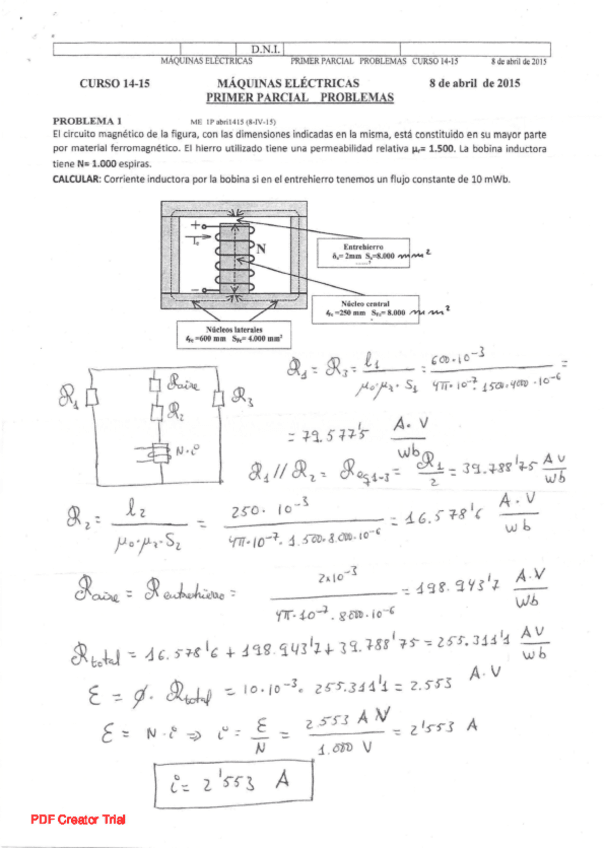 D.N.I.
MÁQUINAS ELÉCTRICAS PRIMER PARCIAL PROBLEMAS CURSO 14-15 8 de abril de 2015
CURSO 14-15 MÁQUINAS ELÉCTRICAS 8 de abril de 2015
PRIMER PARCIAL PROBLEMAS
PROBLEMA 1 ME 1P abri1415 (8-IV-15)
El circuito magnético de la figura, con las dimensiones indicadas en la misma, está constituido en su mayor parte
por material ferromagnético. El hierro utilizado tiene una permeabilidad relativa μr= 1.500. La bobina inductora
tiene N= 1.000 espiras.
CALCULAR: Corriente inductora por la bobina si en el entrehierro tenemos un flujo constante de 10 mWb.
+
N
−
Entrehierro
= 2mm = 8.000 mm²
Núcleo central
=250 mm = 8.000 mm²
Núcleos laterales
=600 mm = 4.000 mm²
R1 Raire R2 N·i R3
R1 = R3 = l1 / μ0·μr·S1 = 600·10⁻³ / 4π·10⁻⁷·1500·4000·10⁻⁶ =
= 79.577'5 A·V / Wb
R1 // R2 = Req1-3 = R1 / 2 = 39.788'75 AV / Wb
R2 = l2 / μ0·μr·S2 = 250·10⁻³ / 4π·10⁻⁷·1.500·8.000·10⁻⁶ = 16.578'6 A·V / Wb
Raire = Rentrehierro = 2x10⁻³ / 4π·10⁻⁷·8000·10⁻⁶ = 198.943'7 A·V / Wb
Rtotal = 16.578'6 + 198.943'7 + 39.788'75 = 255.311'1 AV / Wb
Ɛ = Ø·Rtotal = 10·10⁻³·255.311'1 = 2.553 A·V
Ɛ = N·i ⇒ i = Ɛ / N = 2.553 AV / 1.000 V = 2'553 A
i = 2'553 A
PDF Creator Trial